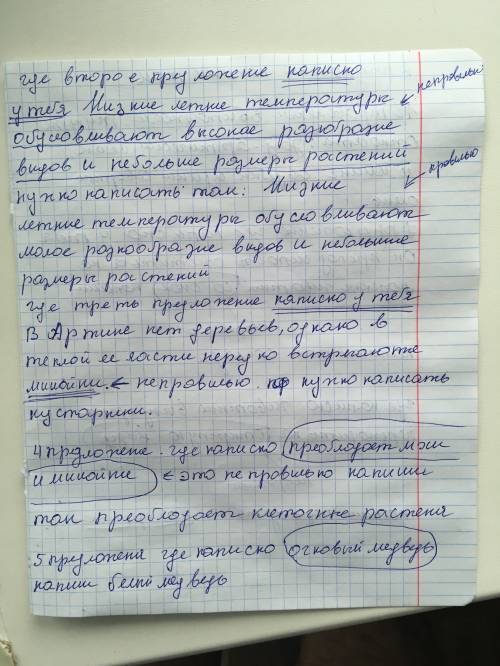 где второе прдложение написно
у тебя Низкие летние температуры неправильн
обусловливают высокае разнобразие
видов и небольше размеры растений
нужно написать так: Низкие правильно
летние температуры обусловливают
малое разнообразие видов и небольшие
размеры растений
где треть предложение напискно у тебя
В Арктике нет деревьев, однако в
теплой ее части нередко встречаются
лишайники. ← неправильно. нужно написать
кустарники.
4 прдложение. где написно преобладает мхи
и лишайник ← это неправильно напиши
так преобладает клеточные растения
5 предложения где написно очковый медведь
напиши белый медведь